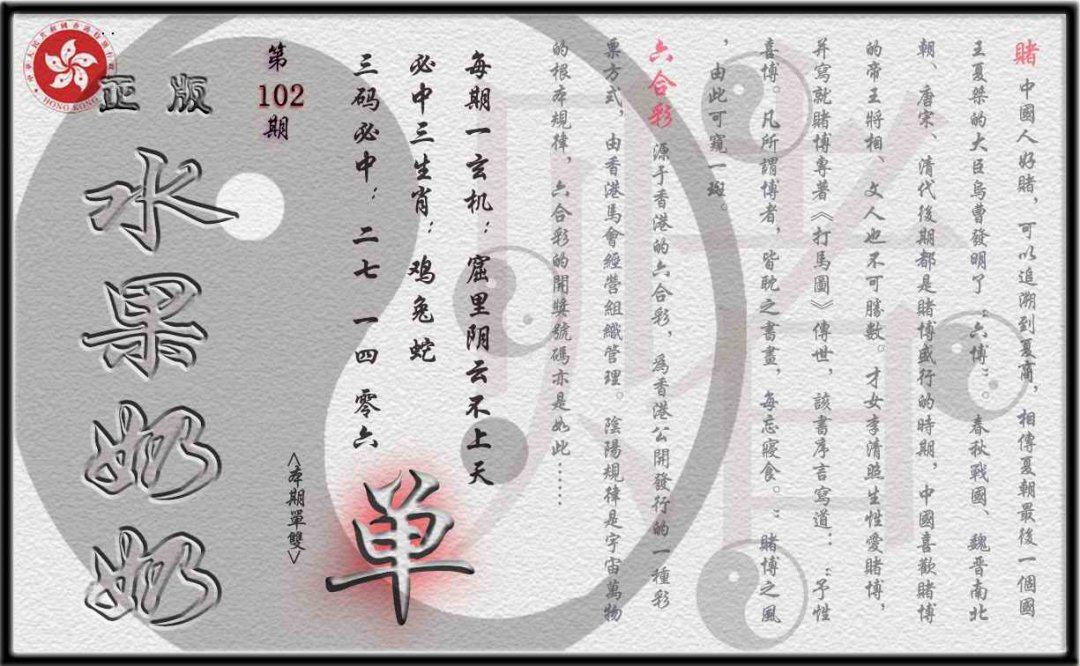 賭 中國人好賭，可以追溯到夏商，相傳夏朝最後一個國
王夏桀的大臣烏曹發明了“六博”。春秋戰國、魏晉南北
朝、唐宋、清代後期都是賭博盛行的時期，中國喜歡賭博
的帝王將相、文人也不可勝數。才女李清照生性愛賭博，
并寫就賭博專著《打馬圖》傳世，該書序言寫道：“予性
喜博。凡所謂博者，皆耽之書畫，每忘寢食。”賭博之風
，由此可窺一斑。
六合彩 源于香港的六合彩，為香港公開發行的一種彩
票方式，由香港馬會經營組織管理。陰陽規律是宇宙萬物
的根本規律，六合彩的開獎號碼亦是如此……
每期一玄机：窟里阴云不上天
必中三生肖：鸡兔蛇
三码必中：二七 一四 零六
单
<本期單雙>
第
102
期
正版
水果奶奶
HONG KONG